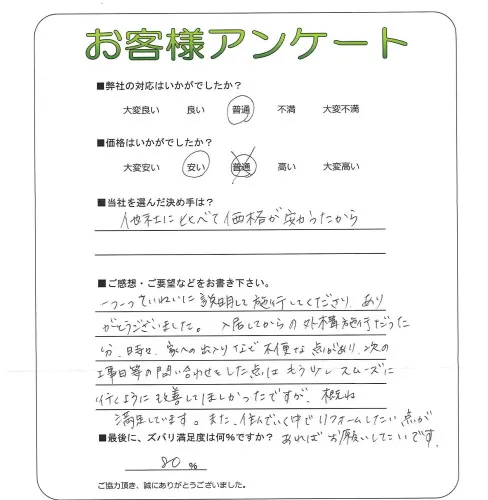 お客様アンケート
■弊社の対応はいかがでしたか？
大変良い 良い 普通 不満 大変不満
■価格はいかがでしたか？
大変安い 安い 普通 高い 大変高い
■当社を選んだ決め手は？
他社に比べて価格が安かったから
■ご感想・ご要望などをお書き下さい。
一つ一つていねいに説明して施行してくださり、あり
がとうございました。 入居してからの外構施行だった
分、日時や家への出入りなど不便な点があり、次の
工事日等の問い合わせをした点はもう少しスムーズに
行くように改善してほしかったですが、概ね
満足しています。また、住んでいく中でリフォームしたい点が
あればお願いしたいです。
■最後に、ズバリ満足度は何%ですか？
80 %
ご協力頂き、誠にありがとうございました。